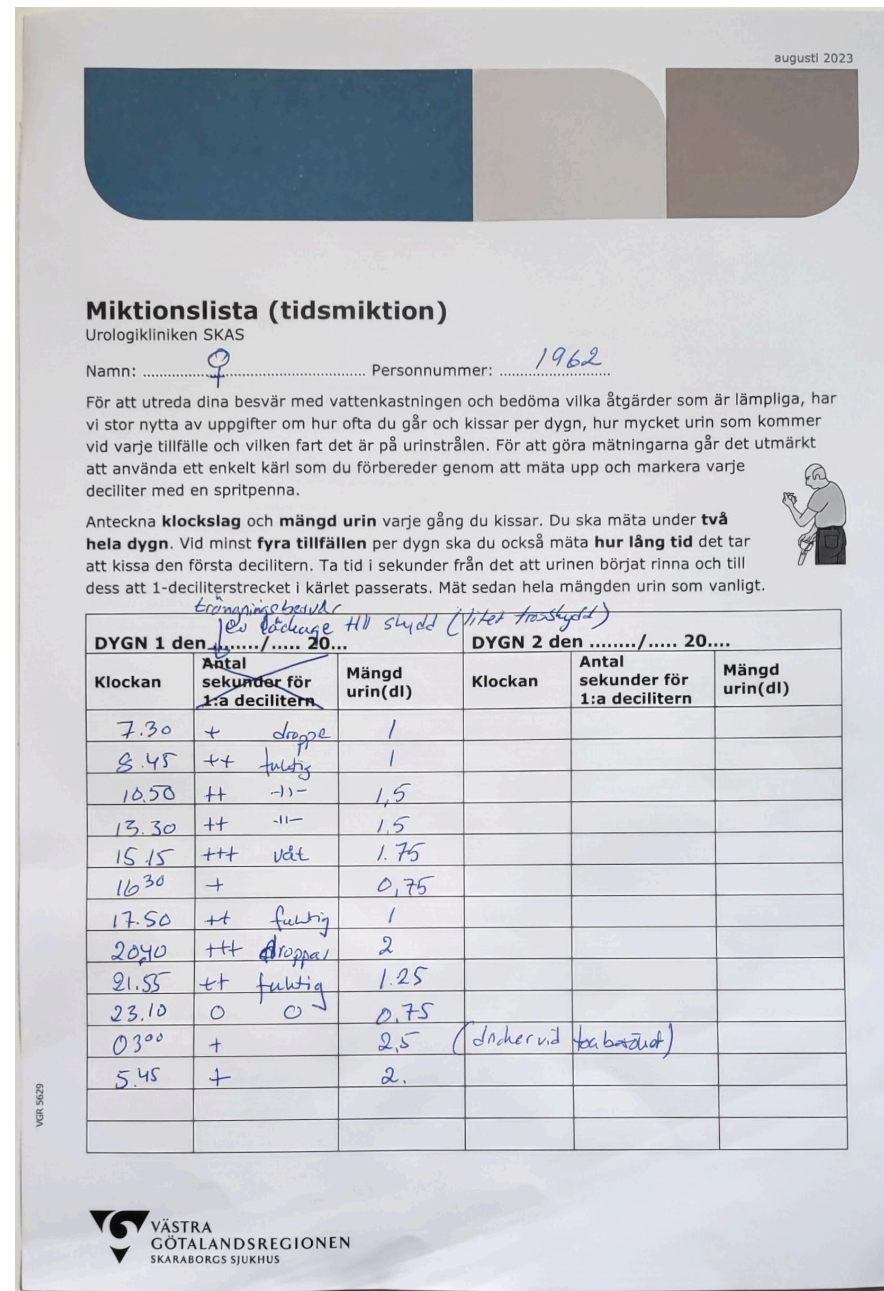 augusti 2023
Miktionslista (tidsmiktion)
Urologikliniken SKAS
Namn: ........♀........ Personnummer: ....1962....
För att utreda dina besvär med vattenkastningen och bedöma vilka åtgärder som är lämpliga, har
vi stor nytta av uppgifter om hur ofta du går och kissar per dygn, hur mycket urin som kommer
vid varje tillfälle och vilken fart det är på urinstrålen. För att göra mätningarna går det utmärkt
att använda ett enkelt kärl som du förbereder genom att mäta upp och markera varje
deciliter med en spritpenna.
Anteckna klockslag och mängd urin varje gång du kissar. Du ska mäta under två
hela dygn. Vid minst fyra tillfällen per dygn ska du också mäta hur lång tid det tar
att kissa den första decilitern. Ta tid i sekunder från det att urinen börjat rinna och till
dess att 1-deciliterstrecket i kärlet passerats. Mät sedan hela mängden urin som vanligt.
trängningsbesvär
ev läckage till skydd (litet trosskydd)
DYGN 1 den ......../..... 20... DYGN 2 den ......../..... 20....
Klockan Antal sekunder för 1:a decilitern Mängd urin(dl) Klockan Antal sekunder för 1:a decilitern Mängd urin(dl)
7.30 + droppe 1
8.45 ++ fuktig 1
10.50 ++ -))- 1,5
13.30 ++ -11- 1.5
15.15 +++ våt 1.75
16 30 + 0,75
17.50 ++ fuktig 1
20,40 +++ droppar 2
21.55 ++ fuktig 1.25
23.10 0 0 0.75
03 00 + 2,5 (dricker vid toabesöket)
5.45 + 2.
VGR 5629
VÄSTRA
GÖTALANDSREGIONEN
SKARABORGS SJUKHUS